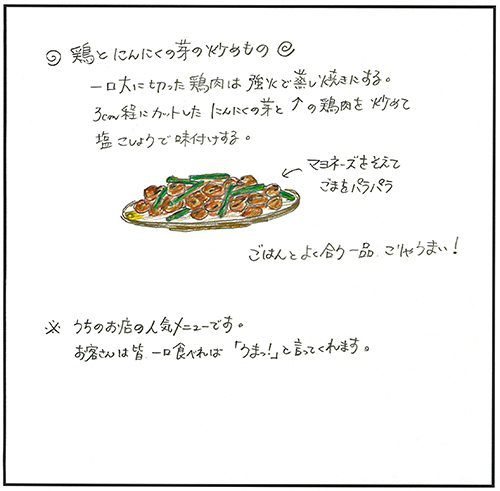 鶏とにんにくの芽の炒めもの
一口大に切った鶏肉は強火で蒸し焼きにする。
3cm程にカットしたにんにくの芽と↑の鶏肉を炒めて
塩こしょうで味付けする。
マヨネーズをそえて
ごまをパラパラ
ごはんとよく合う一品 こりゃうまい!
※ うちのお店の人気メニューです。
お客さんは皆 一口食べれば「うまっ!」と言ってくれます。